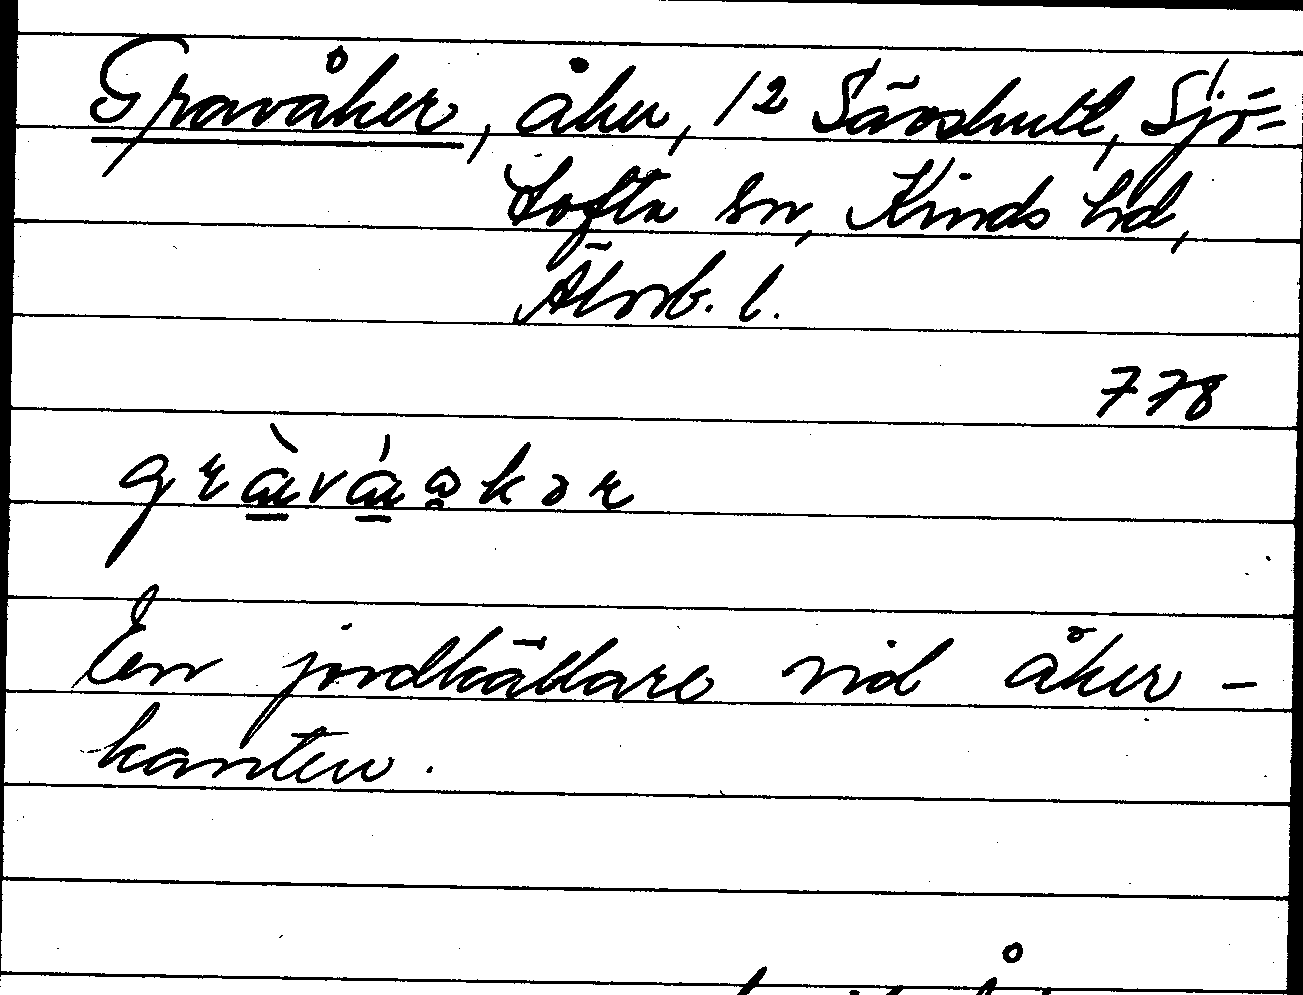 Gravåker, åker, 12 Sävshult, Sjö=
tofta sn, Kinds hd,
Älvsb. l.
778
gràvåa̱kər
En jordkällare vid åker-
kanten.